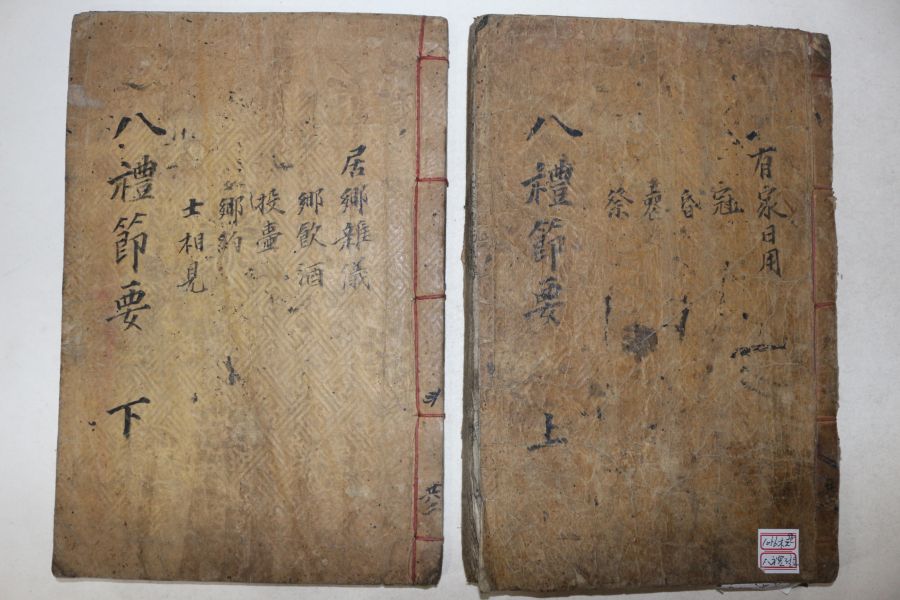 有家日用
冠
昏
喪
祭
八禮節要 上
居鄉雜儀
鄉飮酒
投壺
鄉約
士相見
八禮節要 下
共二